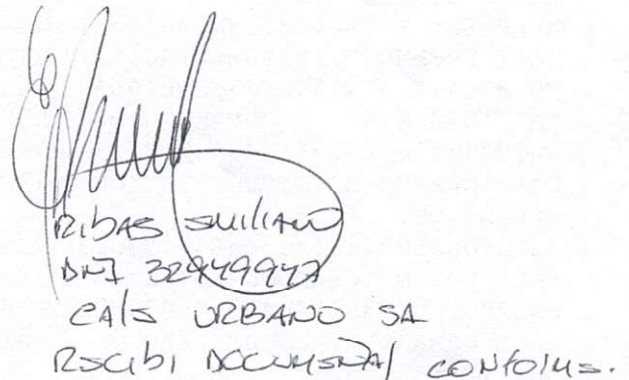 RIBAS EMILIANO
DNI 32949947
CALS URBANO SA
RECIBI DOCUMENTAL CONFORME.